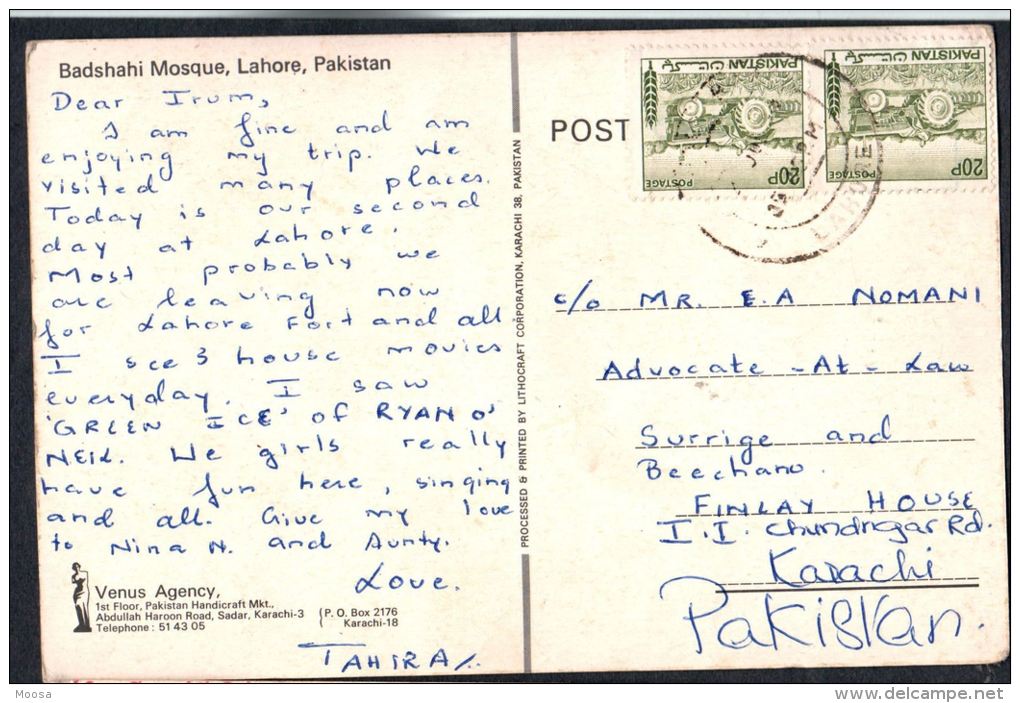 Badshahi Mosque, Lahore, Pakistan
Dear Irum,
I am fine and am
enjoying my trip. We
visited many places.
Today is our second
day at Lahore.
Most probably we
are leaving now
for Lahore Fort and all
I see 3 house movies
everyday. I saw
'GREEN ICE' of RYAN O'
NEIL. We girls really
have fun here, singing
and all. Give my love
to Nina N. and Aunty.
Love.
TAHIRA
Venus Agency,
1st Floor, Pakistan Handicraft Mkt.,
Abdullah Haroon Road, Sadar, Karachi-3
Telephone: 51 43 05
P. O. Box 2176
Karachi-18
PROCESSED & PRINTED BY LITHOCRAFT CORPORATION, KARACHI 38, PAKISTAN
POST
PAKISTAN پاکستان
POSTAGE
20P
PAKISTAN پاکستان
POSTAGE
20P
LAHORE
c/o MR. E.A NOMANI
Advocate - At - Law
Surrige and
Beechano.
FINLAY HOUSE
I.I. Chundrigar Rd.
Karachi
Pakistan.
Moosa
www.delcampe.net